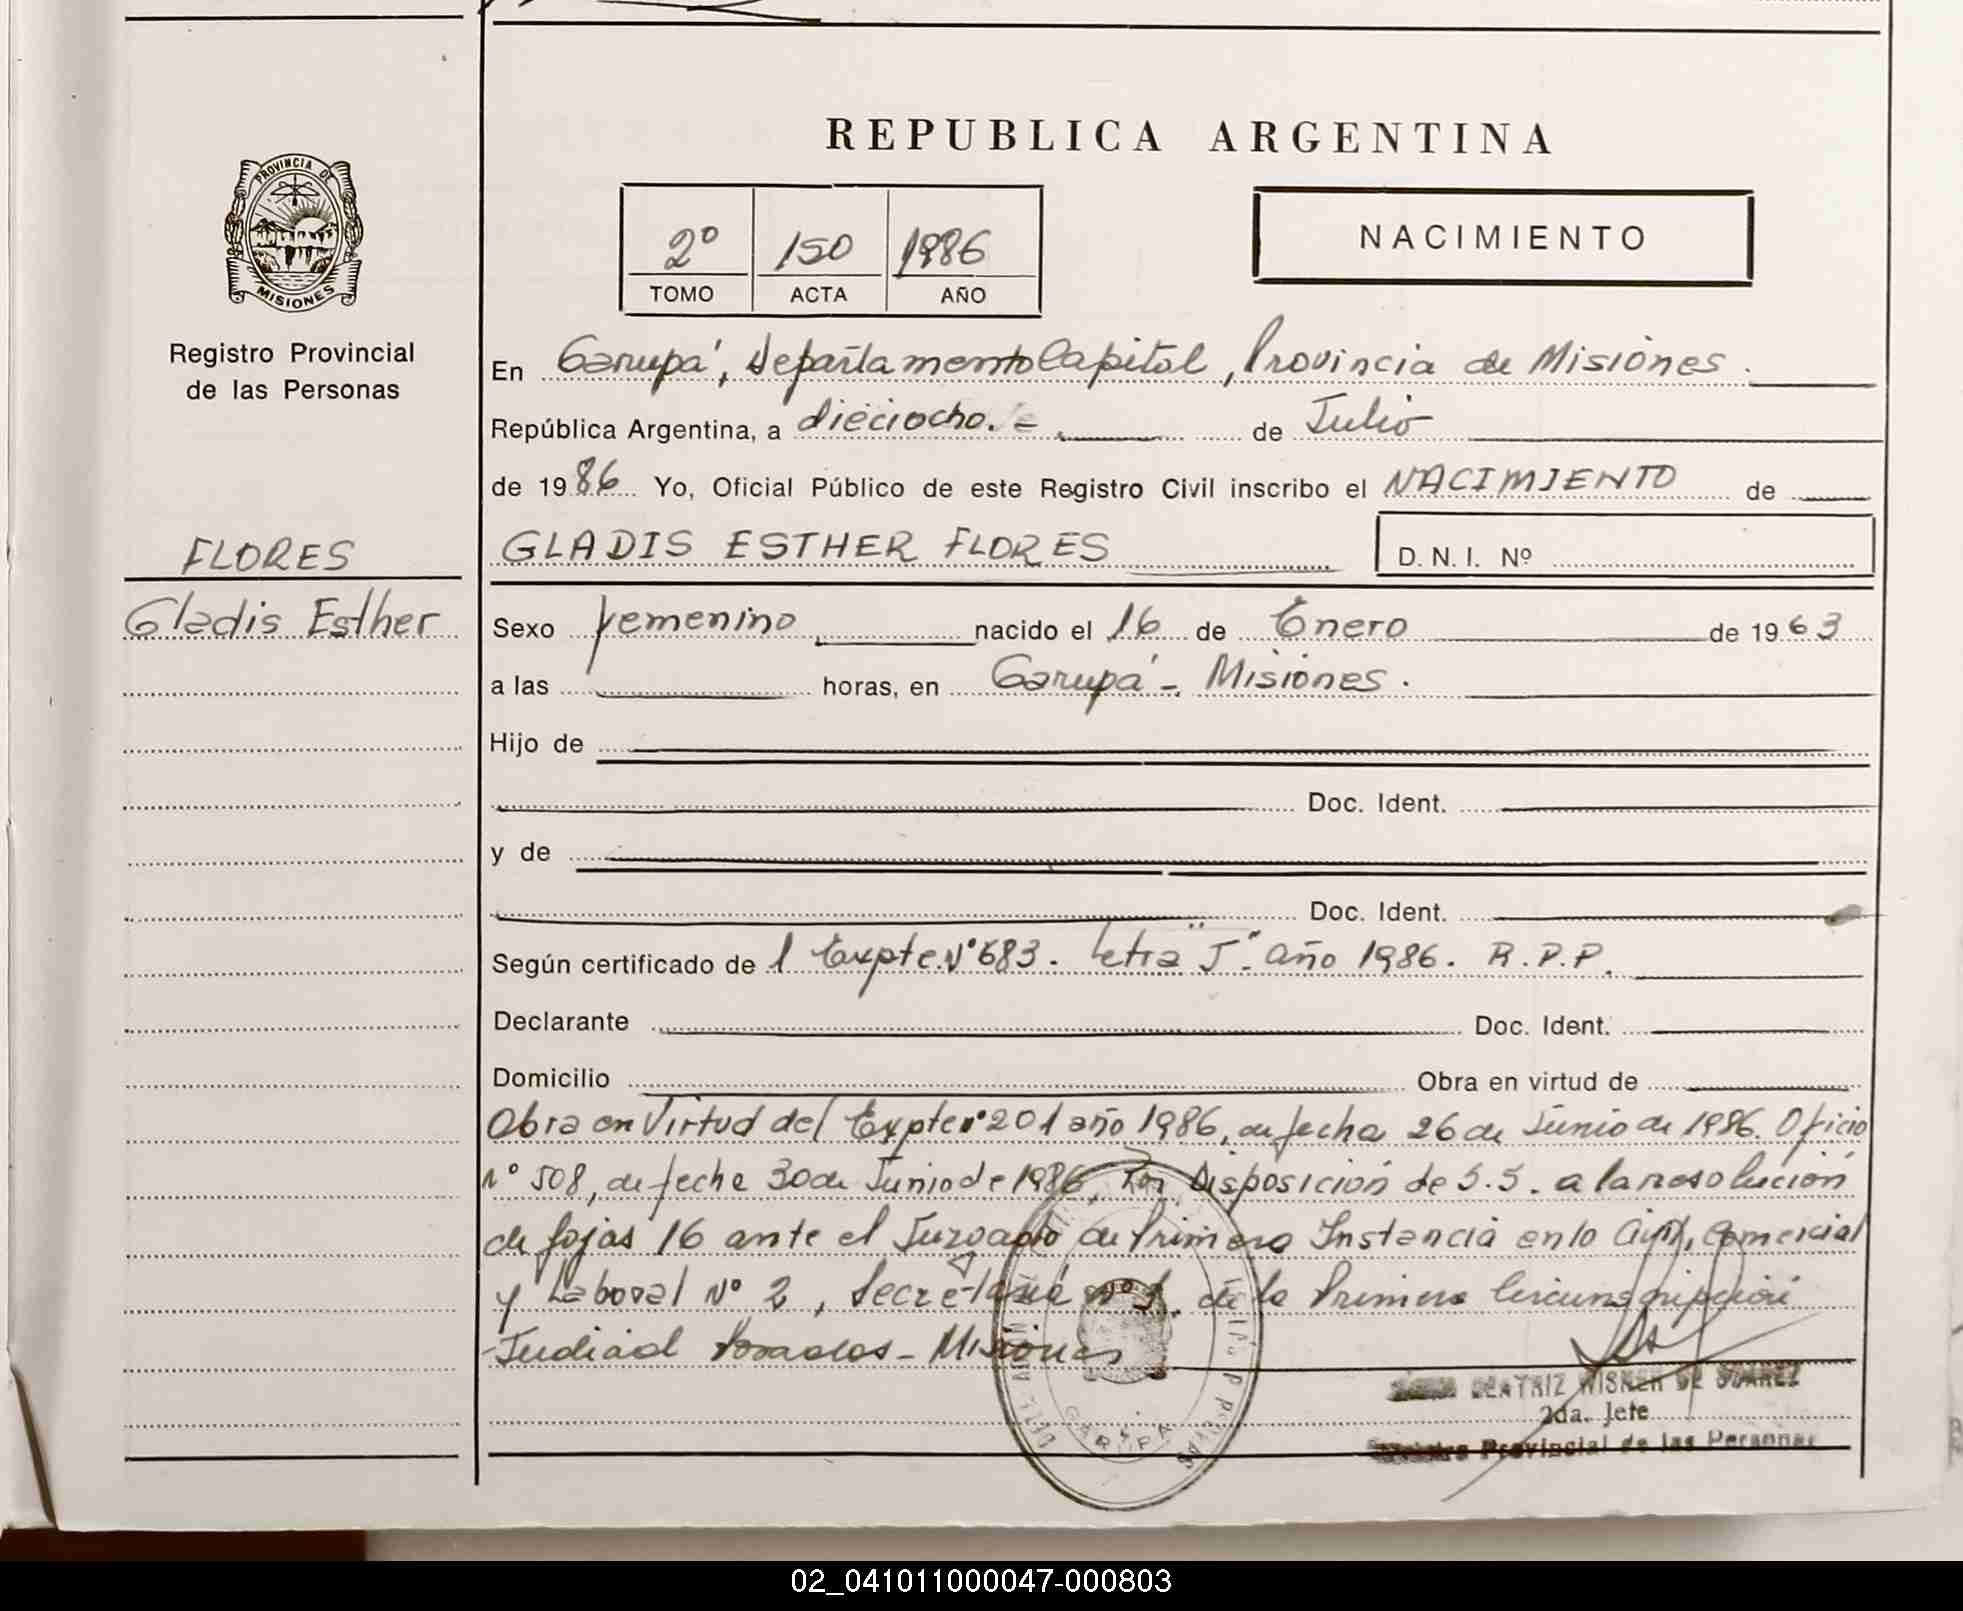 REPUBLICA ARGENTINA
PROVINCIA DE
MISIONES
Registro Provincial
de las Personas
2º 150 1986
TOMO ACTA AÑO
NACIMIENTO
En Garupá, Departamento Capital, Provincia de Misiones.
República Argentina, a dieciocho.= de Julio
de 1986 Yo, Oficial Público de este Registro Civil inscribo el NACIMIENTO de
FLORES
GLADIS ESTHER FLORES
D.N.I. Nº
Gladis Esther
Sexo femenino nacido el 16 de Enero de 1963
a las horas, en Garupá - Misiones.
Hijo de
Doc. Ident.
y de
Doc. Ident.
Según certificado de l Expte. Nº 683. letra "J". año 1986. R.P.P.
Declarante Doc. Ident.
Domicilio Obra en virtud de
Obra en Virtud del Expte nº 201 año 1986, de fecha 26 de Junio de 1986. Oficio
nº 508, de fecha 30 de Junio de 1986, Por Disposición de S.S. a la resolución
de fojas 16 ante el Juzgado de Primera Instancia en lo Civil, Comercial
y Laboral Nº 2, Secretaria nº 1, de la Primera Circunscripción
Judicial Posadas - Misiones
BEATRIZ WISNER DE SUAREZ
2da. Jefe
Provincial de las Personas
GARUPA
02_041011000047-000803